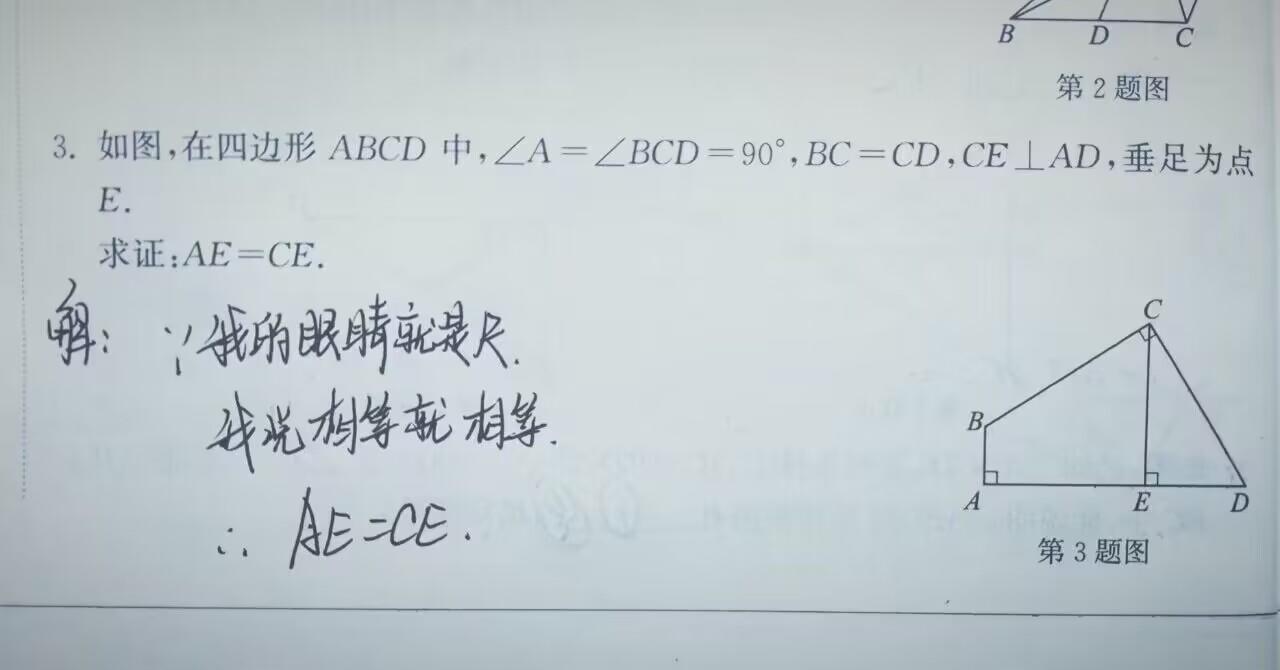 B D C
第2题图
3. 如图,在四边形 ABCD 中,∠A=∠BCD=90°,BC=CD,CE⊥AD,垂足为点
E.
求证:AE=CE.
解: ∵我的眼睛就是尺.
我说相等就相等.
∴ AE=CE.
C
B
A E D
第3题图